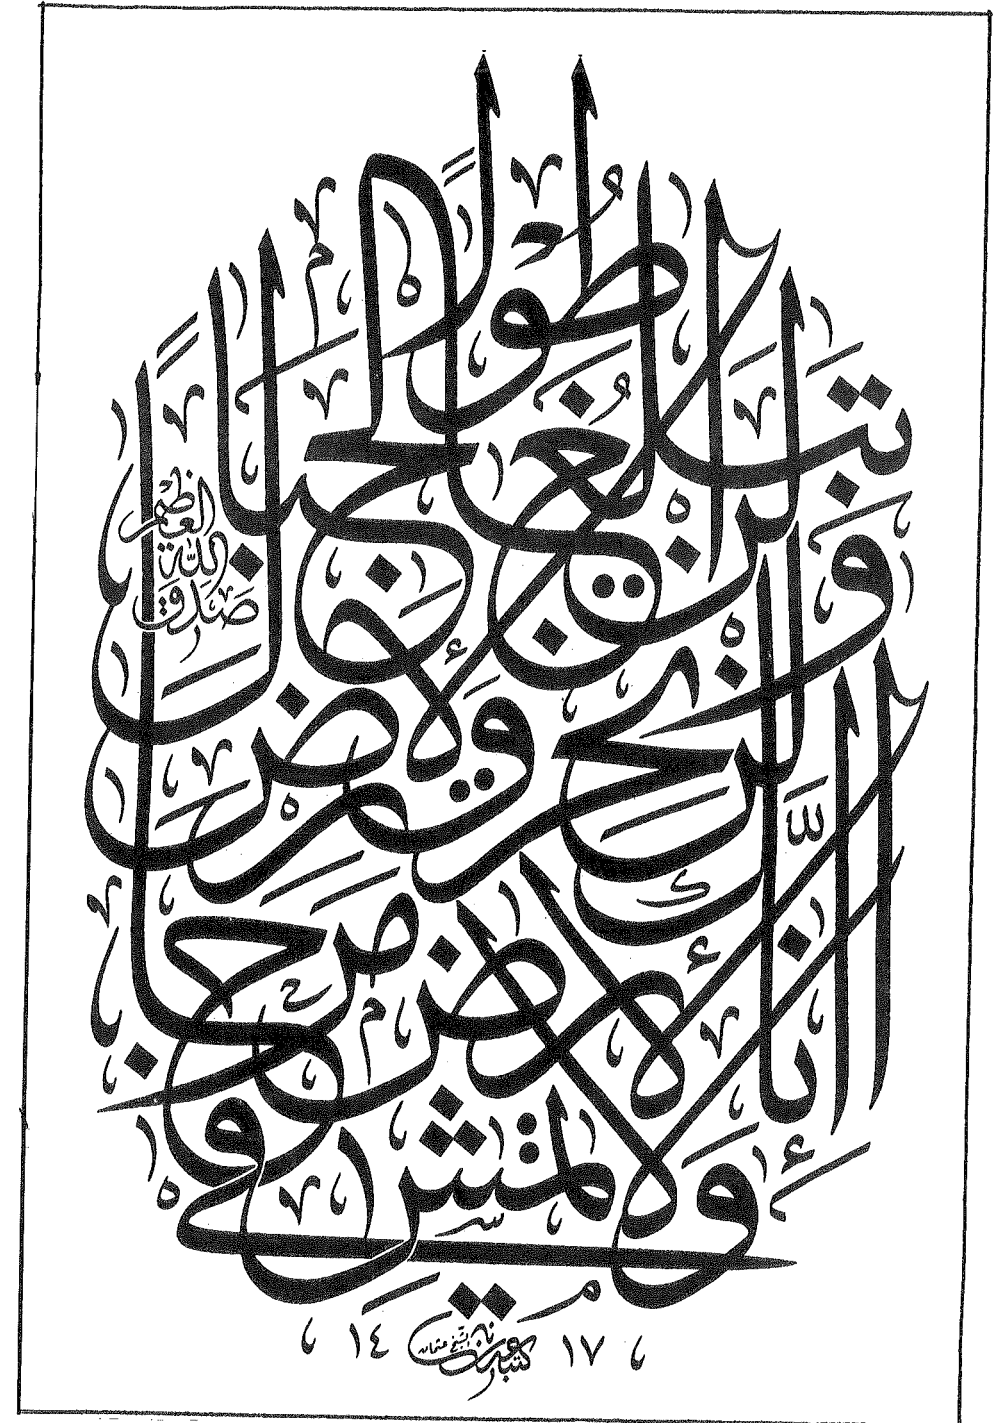 وَلَا تَمْشِ فِي الْأَرْضِ مَرَحًا
إِنَّكَ لَن تَخْرِقَ الْأَرْضَ
وَلَن تَبْلُغَ الْجِبَالَ طُولًا
صدق الله العظيم
١٧ ١٤